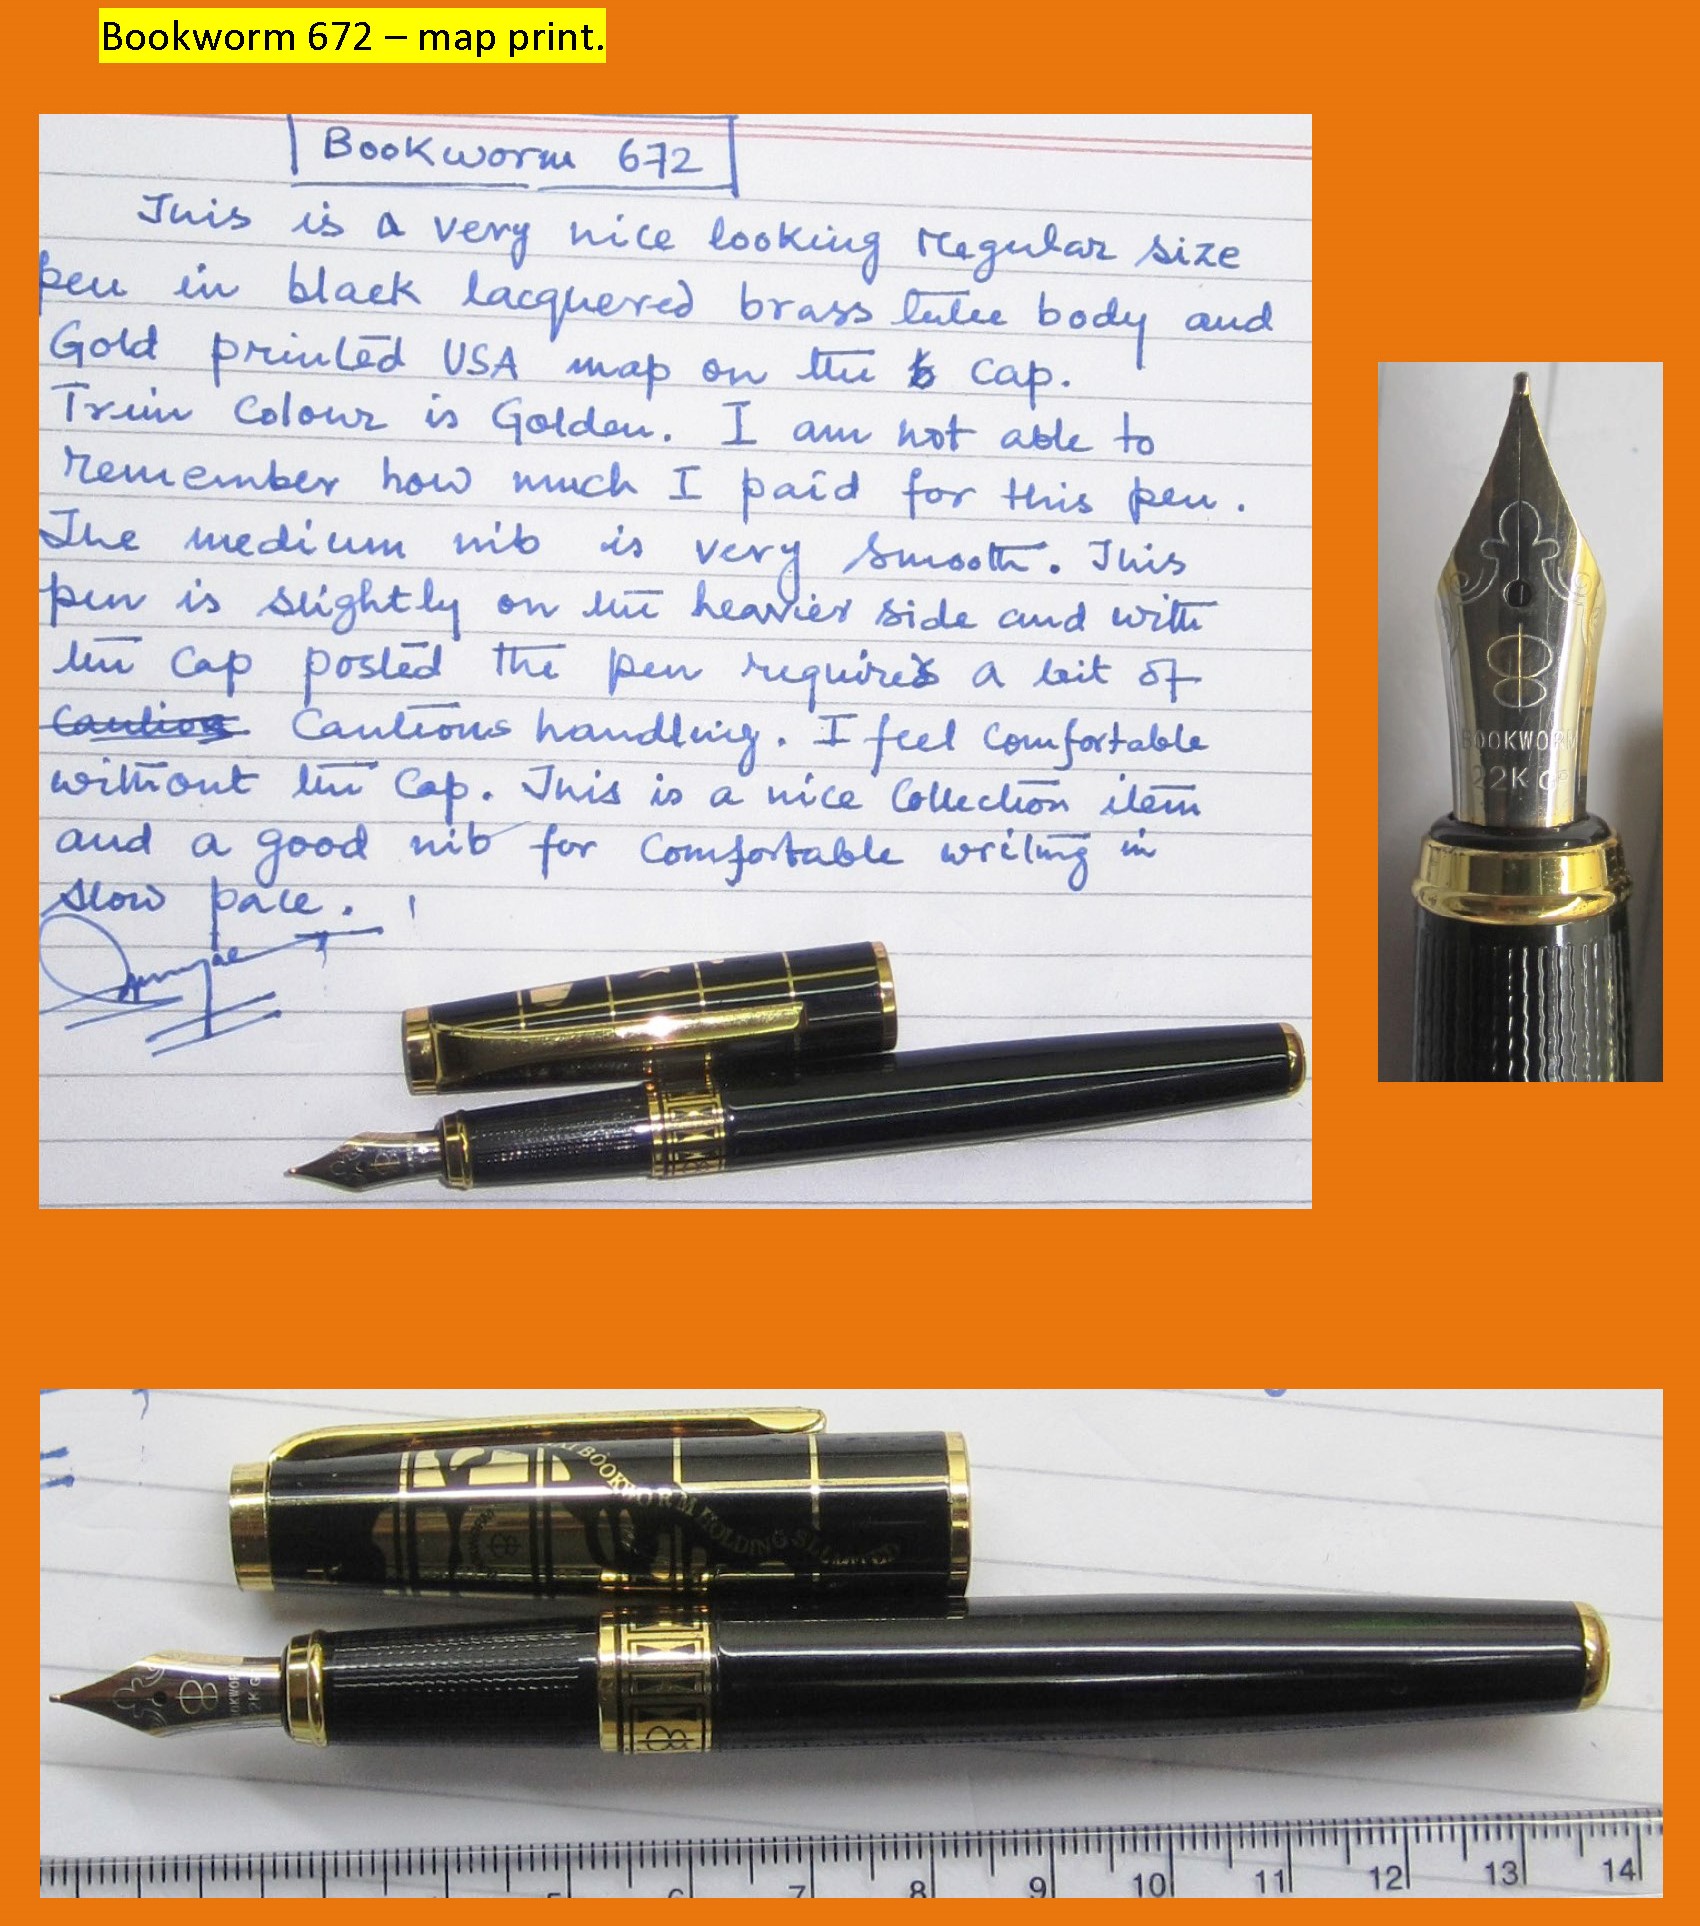 Bookworm 672 – map print.
Bookworm 672
This is a very nice looking regular size
pen in black lacquered brass tube body and
Gold printed USA map on the b cap.
Trim Colour is Golden. I am not able to
remember how much I paid for this pen.
The medium nib is very smooth. This
pen is slightly on the heavier side and with
the cap posted the pen requires a bit of
Cautios Cautious handling. I feel Comfortable
without the Cap. This is a nice Collection item
and a good nib for Comfortable writing in
slow pace.
BOOKWORM
22K GP
BOOKWORM HOLDINGS LIMITED
BOOKWOR
22K G
6 7 8 9 10 11 12 13 14